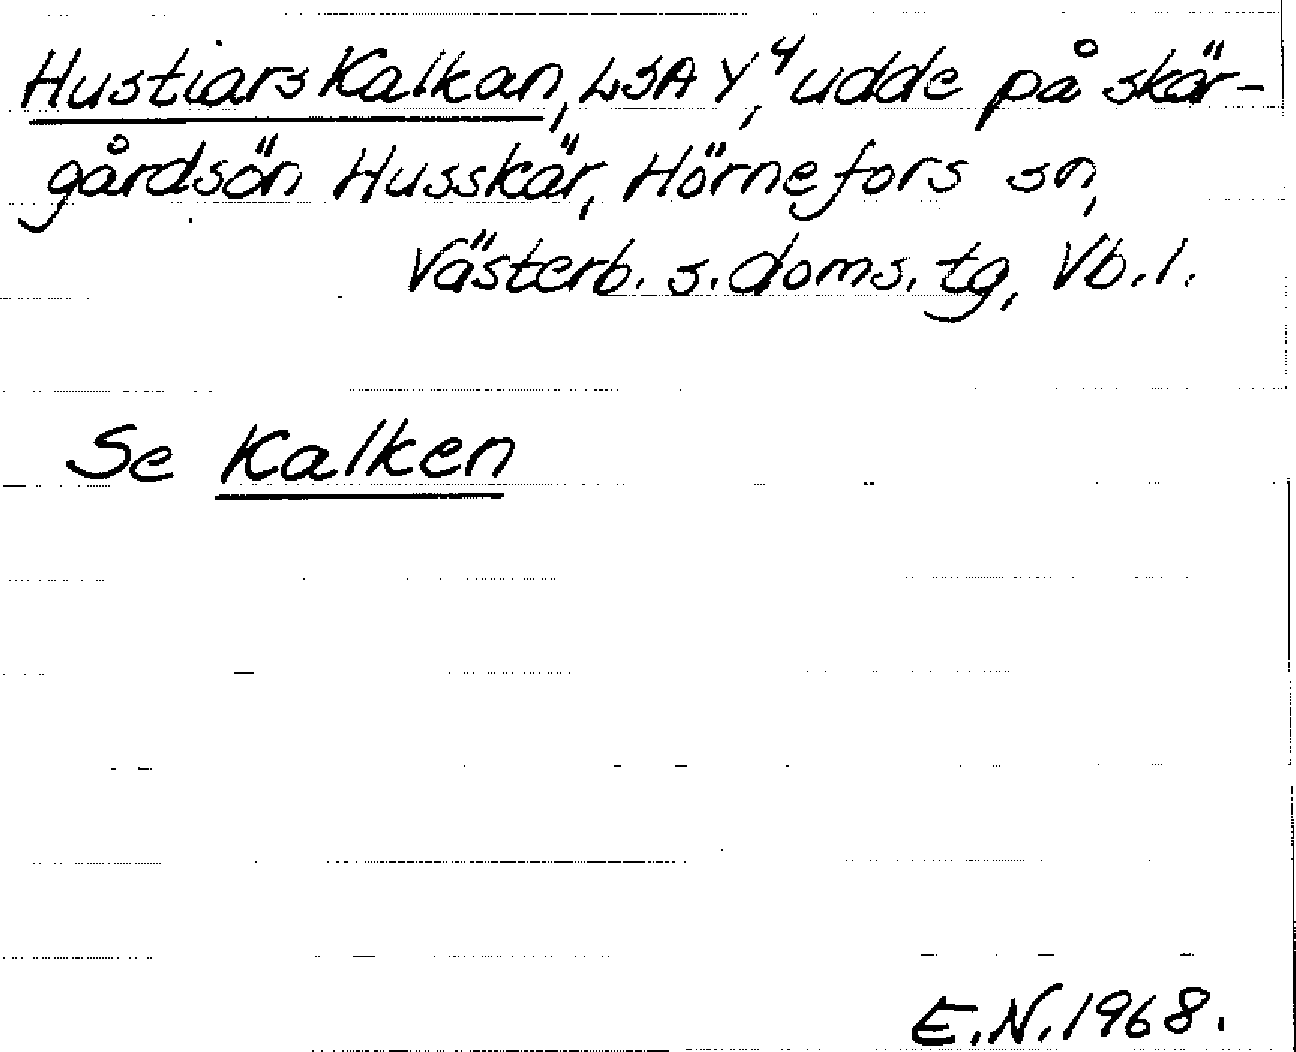 Hustiars Kalkan, LSA Y, 4 udde på skär-
gårdsön Husskär, Hörnefors sn,
Västerb. s. doms. tg, Vb. l.
Se Kalken
E.N. 1968.